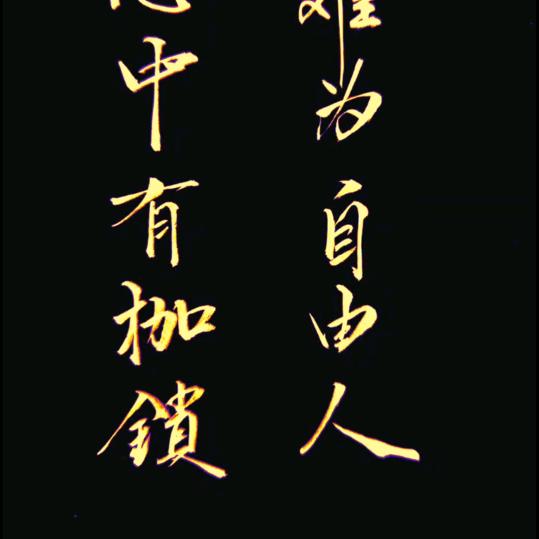 难为自由人
心中有枷鎖